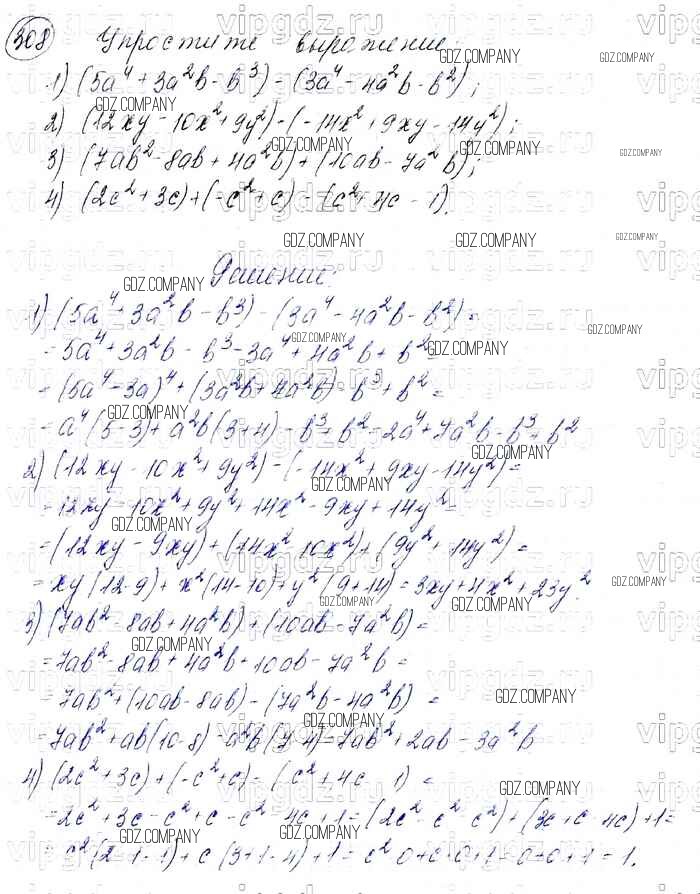 308 Упростите выражение:
1) (5a⁴ + 3a²b - b³) - (3a⁴ - 4a²b - b²);
2) (12xy - 10x² + 9y²) - (-14x² + 9xy - 14y²);
3) (7ab² - 8ab + 4a²b) + (10ab - 7a²b);
4) (2c² + 3c) + (-c² + c) - (c² + 4c - 1).
Решение:
1) (5a⁴ + 3a²b - b³) - (3a⁴ - 4a²b - b²) =
= 5a⁴ + 3a²b - b³ - 3a⁴ + 4a²b + b² =
= (5a⁴ - 3a)⁴ + (3a²b + 4a²b) - b³ + b² =
= a⁴(5-3) + a²b(3+4) - b³ + b² = 2a⁴ + 7a²b - b³ + b²
2) (12xy - 10x² + 9y²) - (-14x² + 9xy - 14y²) =
= 12xy - 10x² + 9y² + 14x² - 9xy + 14y² =
= (12xy - 9xy) + (14x² - 10x²) + (9y² + 14y²) =
= xy(12-9) + x²(14-10) + y²(9+14) = 3xy + 4x² + 23y².
3) (7ab² - 8ab + 4a²b) + (10ab - 7a²b) =
= 7ab² - 8ab + 4a²b + 10ab - 7a²b =
= 7ab² + (10ab - 8ab) - (7a²b - 4a²b) =
= 7ab² + ab(10-8) - a²b(7-4) = 7ab² + 2ab - 3a²b
4) (2c² + 3c) + (-c² + c) - (c² + 4c - 1) =
= 2c² + 3c - c² + c - c² - 4c + 1 = (2c² - c² - c²) + (3c + c - 4c) + 1 =
= c²(2-1-1) + c(3+1-4) + 1 = c²·0 + c·0 + 1 = 0+0+1 = 1.